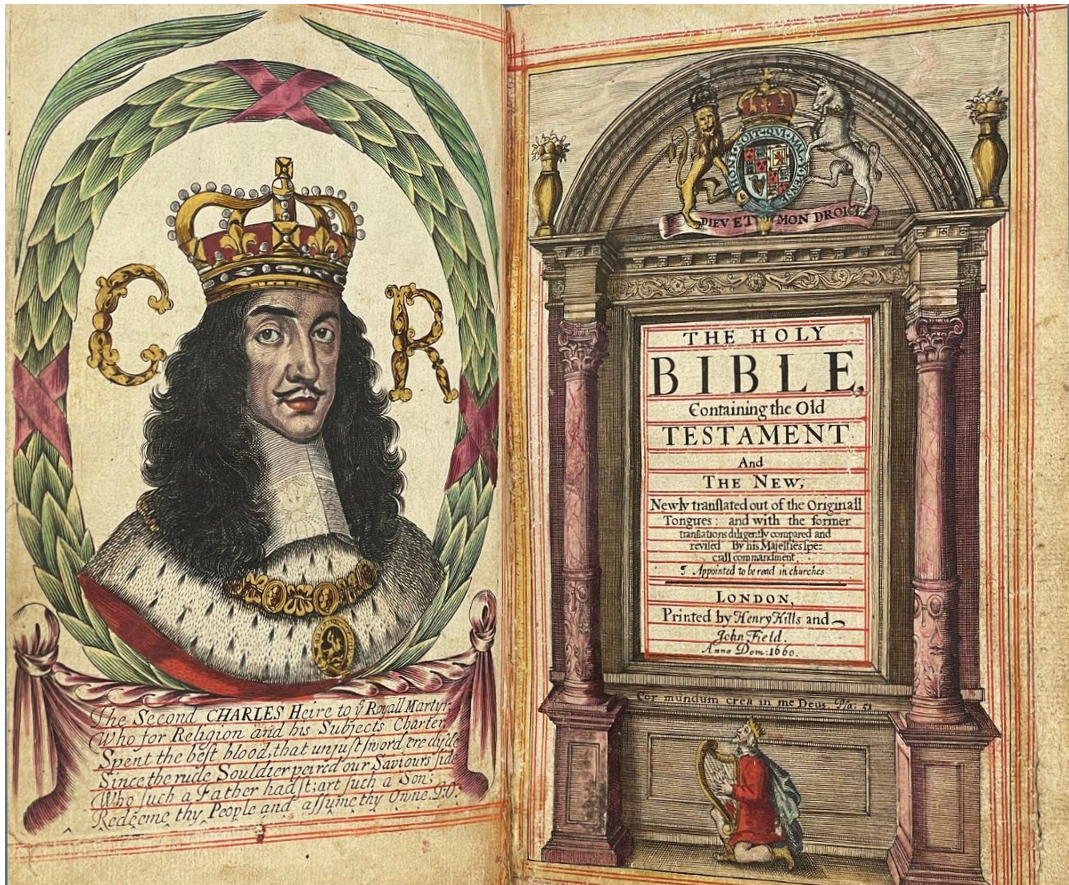 C R
The Second CHARLES Heire to yͤ Royall Martyr,
Who for Religion and his Subjects Charter
Spent the best blood, that unjust sword ere dy'de
Since the rude Souldier peired our Saviours side
Who such a Father had'st; art such a Son;
Redeeme thy People and assume thy Owne.
HONI SOIT QVI MAL
DIEV ET MON DROIT
THE HOLY
BIBLE,
Containing the Old
TESTAMENT
And
THE NEW,
Newly translated out of the Originall
Tongues: and with the former
translations diligently compared and
revised By his Majesties spe=
ciall commandment
¶ Appointed to be read in churches
LONDON,
Printed by Henry Hills and
John Field.
Anno Dom: 1660.
Cor mundum crea in me Deus. Psa: 51